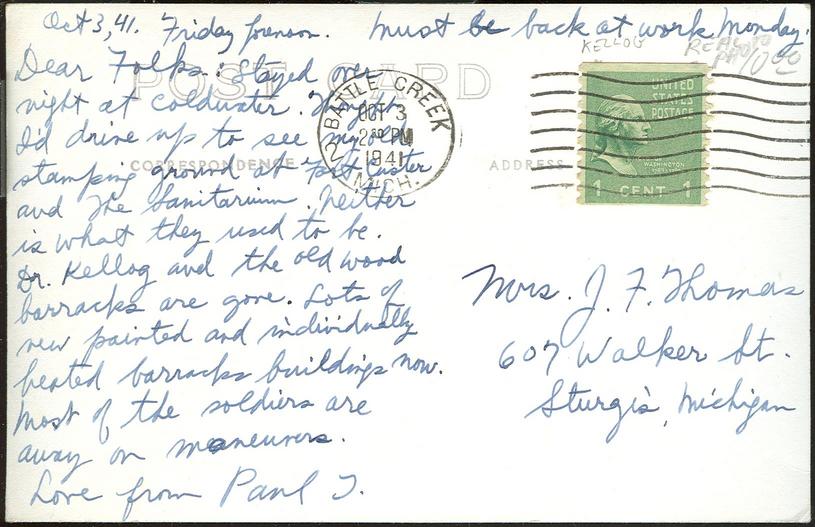 Oct 3, 41. Friday forenoon. Must be back at work Monday.
KELLOG
REAL PHOTO
10.00
POST CARD
Dear Folks: Stayed over
night at Coldwater. Thought
I'd drive up to see my old
stamping ground at Ft Custer
and the Sanitarium. Neither
is what they used to be.
Dr. Kellog and the old wood
barracks are gone. Lots of
new painted and individually
heated barracks buildings now.
Most of the soldiers are
away on maneuvers.
Love from Paul T.
CORRESPONDENCE
ADDRESS
BATTLE CREEK
OCT 3
2 PM
1941
2
MICH.
UNITED
STATES
POSTAGE
WASHINGTON
1 CENT 1
Mrs. J. F. Thomas
607 Walker St.
Sturgis, Michigan